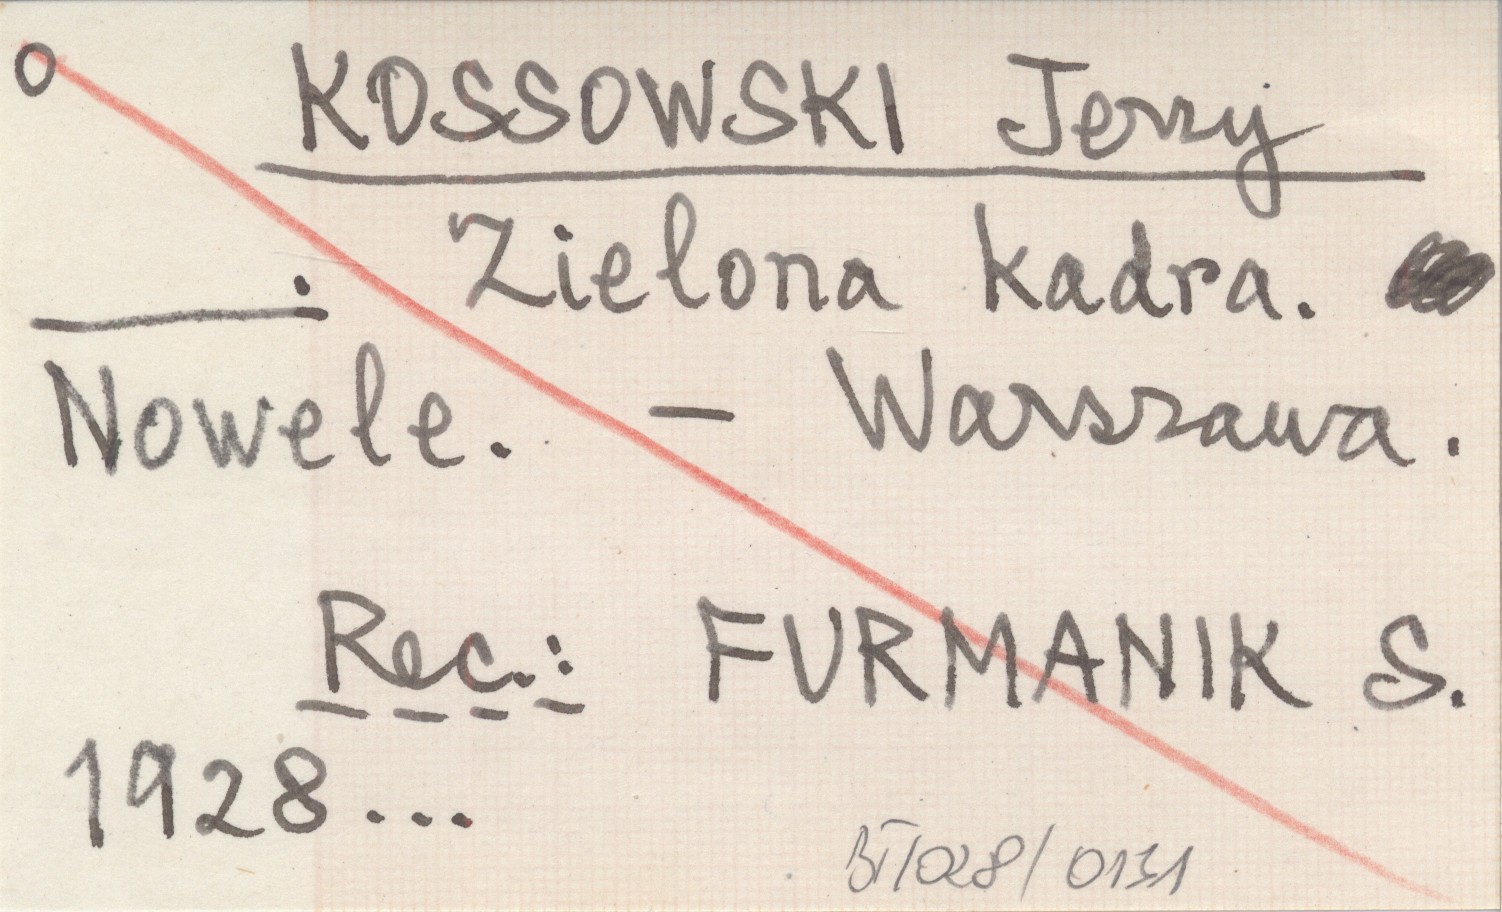 O KOSSOWSKI Jerzy
____. Zielona kadra.
Nowele. – Warszawa.
Rec.: FURMANIK S.
1928...
BT/028/0131